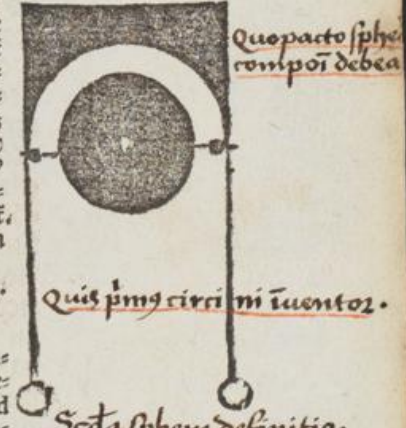 Quopacto sphe
compoī debea
Quis pͥmꝰ circi ni īuentor.
Scd̄a sphere definitio.